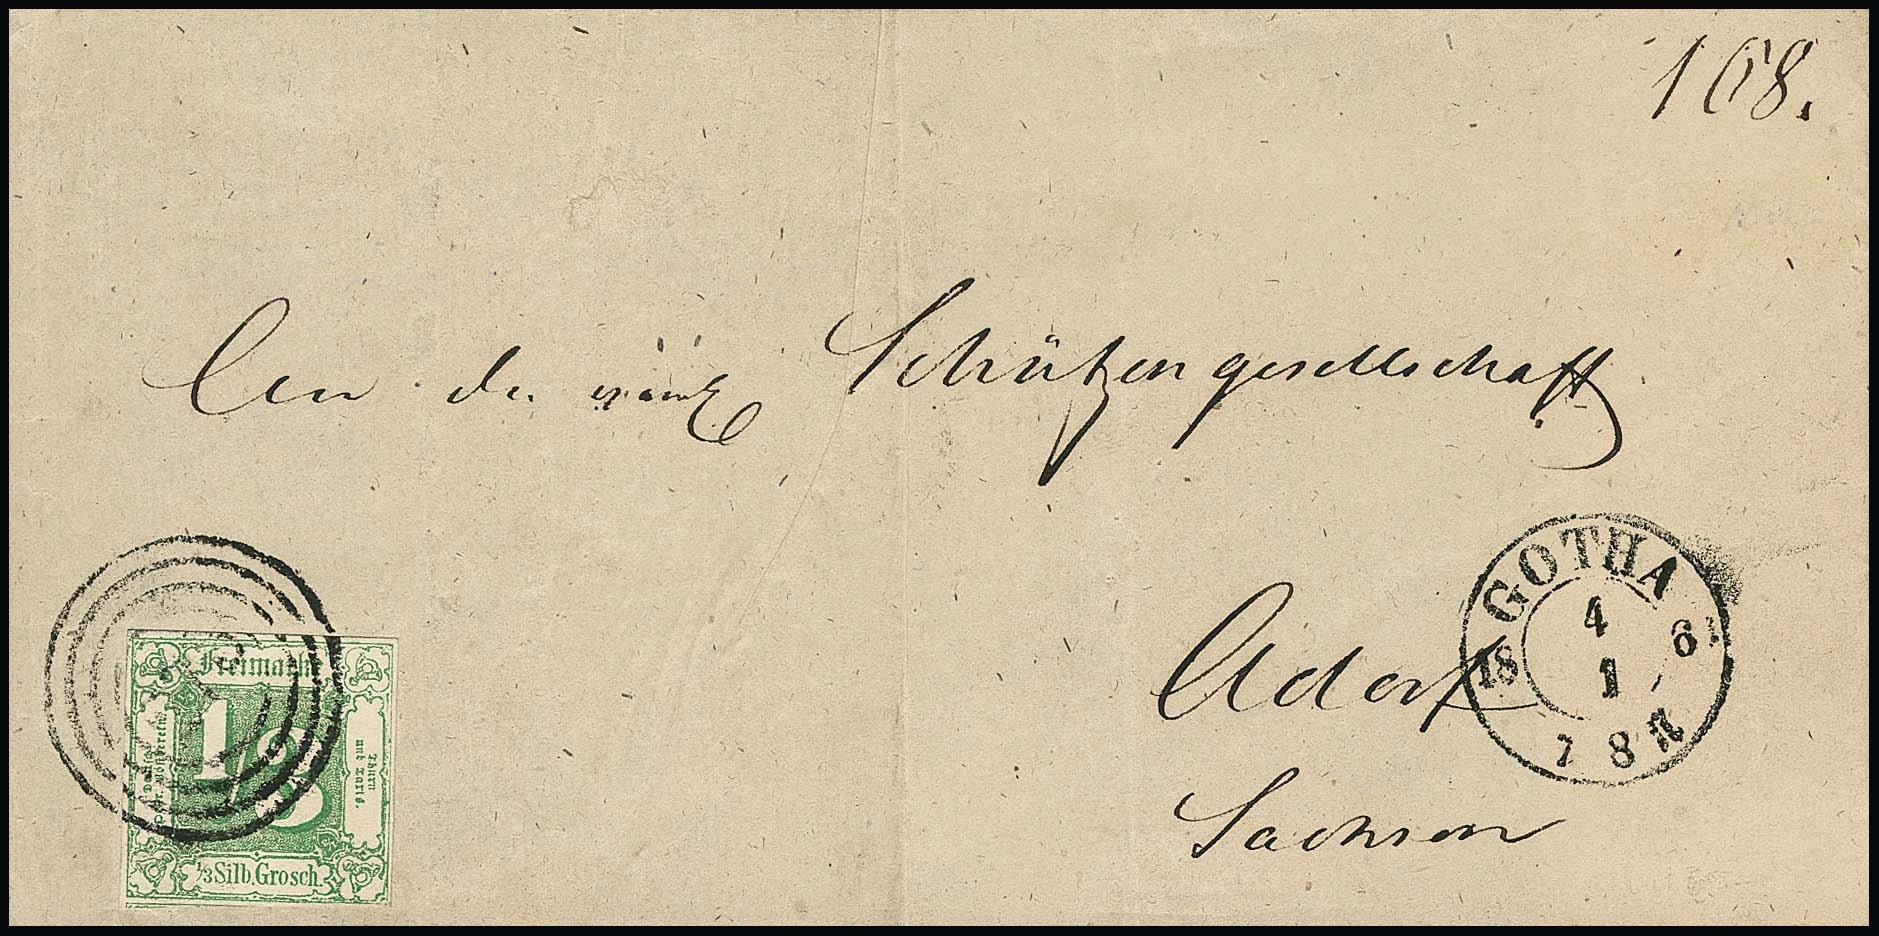 168.
An de
Schützengesellschaft
Adorf
Sachsen
GOTHA
4
1
18 6
7 8 A
Freimarke
1/3
Deutsch
Östr. Postverein
Thurn
und Taxis.
1/3 Silb. Grosch.